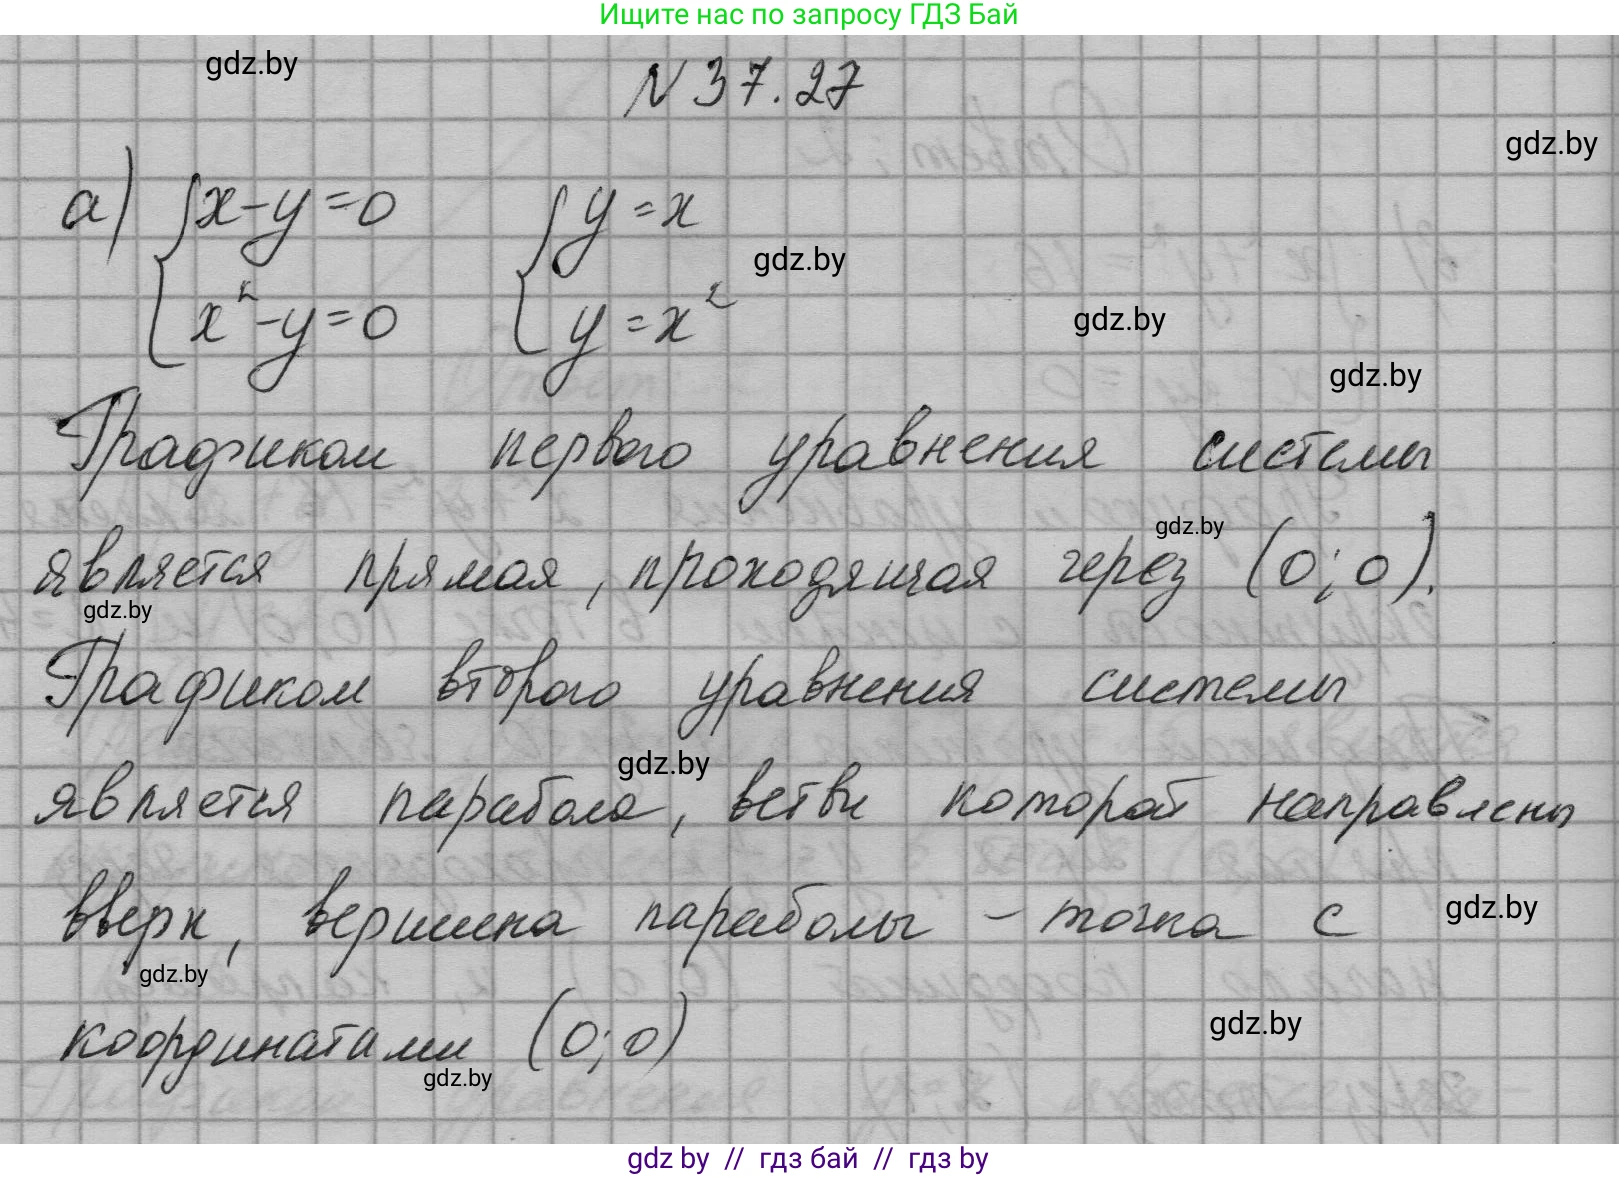 Ищите нас по запросу ГДЗ Бай
gdz.by
N 37.27
gdz.by
а) { x-y=0 { y=x
gdz.by
x²-y=0 y=x²
gdz.by
gdz.by
Графиком первого уравнения системы
gdz.by
является прямая, проходящая через (0;0).
gdz.by
Графиком второго уравнения системы
gdz.by
является парабола, ветви которой направлены
вверх, вершина параболы - точка с
gdz.by
gdz.by
координатами (0;0)
gdz.by
gdz.by
gdz by // гдз бай // гдз by